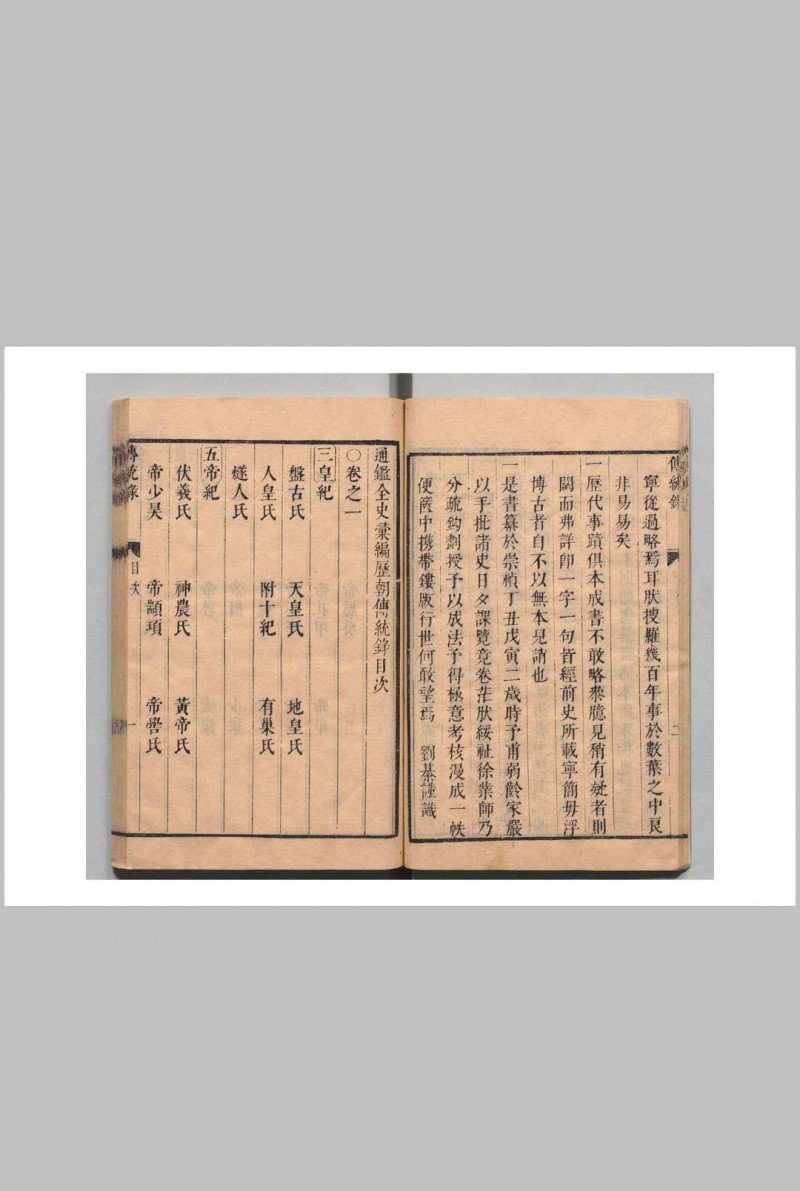 傳統錄
二
寧從過略焉耳肰搜羅幾百年事於數葉之中良
非易易矣
一歷代事蹟俱本成書不敢略叅臆見稍有疑者則
闕而弗詳即一字一句皆經前史所載寧簡毋浮
博古者自不以無本見誚也
一是書纂於崇禎丁丑戊寅二歲時予甫弱齡家嚴
以手批諸史日夕課覽竟卷茫肰綏祉徐業師乃
分疏鈎劃授予以成法予得極意考核漫成一帙
便篋中携帶鏤版行世何敢望焉 劉綦謹識
通鑑全史彙編歷朝傳統錄目次
〇卷之一
三皇紀
盤古氏 天皇氏 地皇氏
人皇氏 附十紀 有巢氏
燧人氏
五帝紀
伏羲氏 神農氏 黃帝氏
帝少昊 帝顓頊 帝嚳氏
傳統錄 目次 一